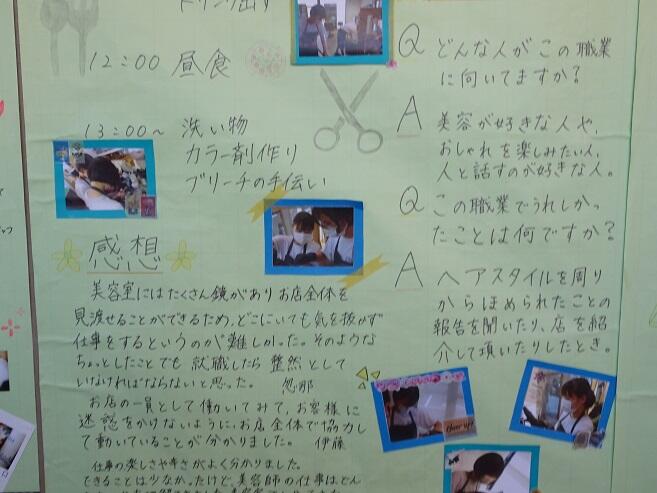 12:00 昼食
13:00～ 洗い物
カラー剤作り
ブリーチの手伝い
感想
美容室にはたくさん鏡がありお店全体を
見渡せることができるため、どこにいても気を抜かず
仕事をするというのが難しかった。そのような
ちょっとしたことでも就職したら整然として
いなければならないと思った。 忽那
お店の一員として働いてみて、お客様に
迷惑をかけないように、お店全体で協力し
て動いていることが分かりました。 伊藤
仕事の楽しさや辛さがよく分かりました。
できることは少なかったけど、美容師の仕事はどん
Q どんな人がこの職業
に向いてますか?
A 美容が好きな人や、
おしゃれを楽しみたい人、
人と話すのが好きな人。
Q この職業でうれしかっ
たことは何ですか?
A ヘアスタイルを周り
からほめられたことの
報告を聞いたり、店を紹
介して頂いたりしたとき。
Cheer up!